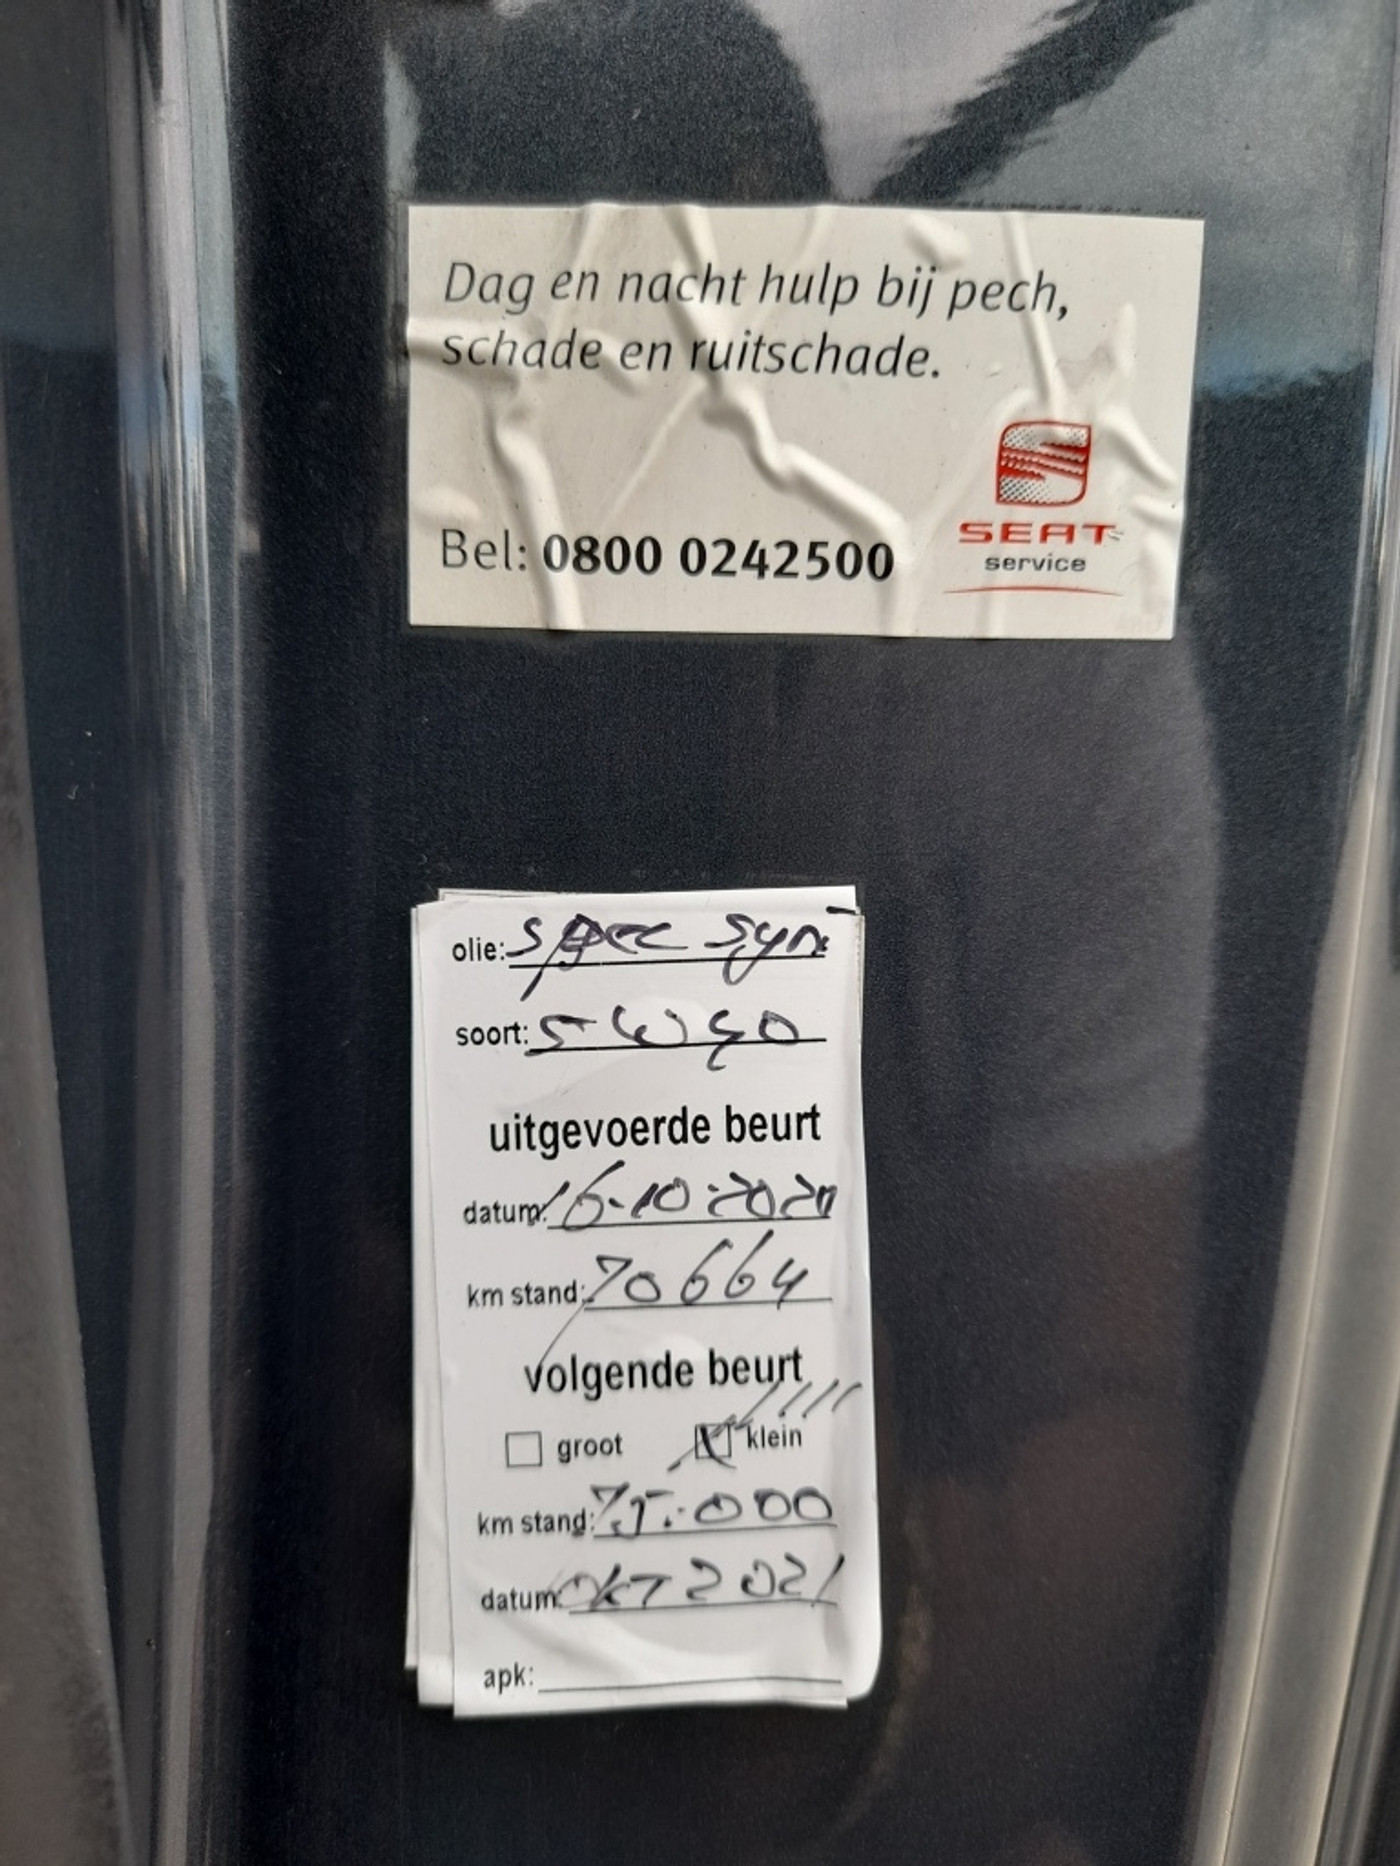 Dag en nacht hulp bij pech,
schade en ruitschade.
Bel: 0800 0242500
SEAT
service
olie: spec syn
soort: 5W40
uitgevoerde beurt
datum: 16-10-2020
km stand: 70664
volgende beurt
groot klein
km stand: 75.000
datum: OKT 2021
apk: